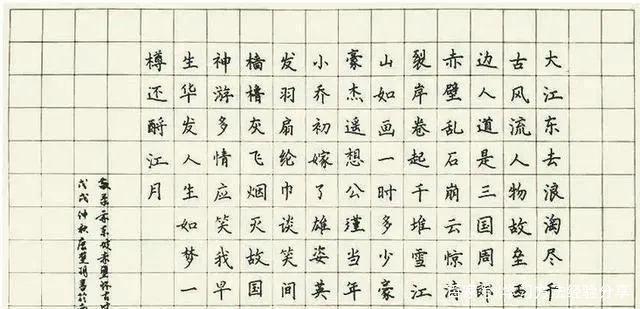 大江东去浪淘尽千
古风流人物故垒西
边人道是三国周郎
赤壁乱石崩云惊涛
裂岸卷起千堆雪江
山如画一时多少豪
豪杰遥想公瑾当年
小乔初嫁了雄姿英
发羽扇纶巾谈笑间
樯橹灰飞烟灭故国
神游多情应笑我早
生华发人生如梦一
樽还酹江月
东坡赤壁怀古
戊戌仲秋
经验分享